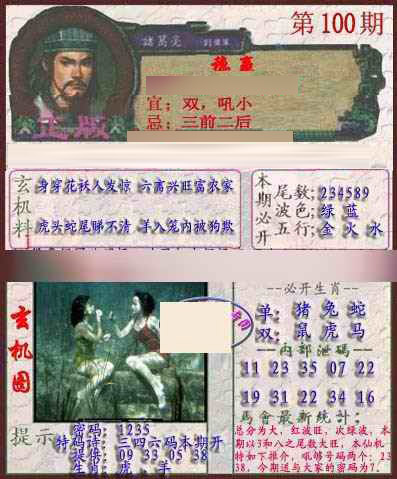 第100期
諸葛亮
稳赢
宜；双，吼小
忌；三前二后
正版
玄机料
身穿花袄人发惊 六畜兴旺富农家
虎头蛇尾睇不清 羊入笼内被狗欺
本期必开
尾数;234589
波色;绿 蓝
五行;金 火 水
玄机图
必开生肖
单: 猪 兔 蛇
双: 鼠 虎 马
内部泄码
11 23 35 07 22
19 31 22 34 16
馬會最新统计:
总分为大，红波旺，次绿波，本
期以3和八之尾数大旺，本仙机
特如下推介，吼够号码两个:
38，今期送与大家的密码为7.
提示
密码: 1235
特码诗: 三四六码本期开
提供: 09 33 05 38
生肖: 虎，羊